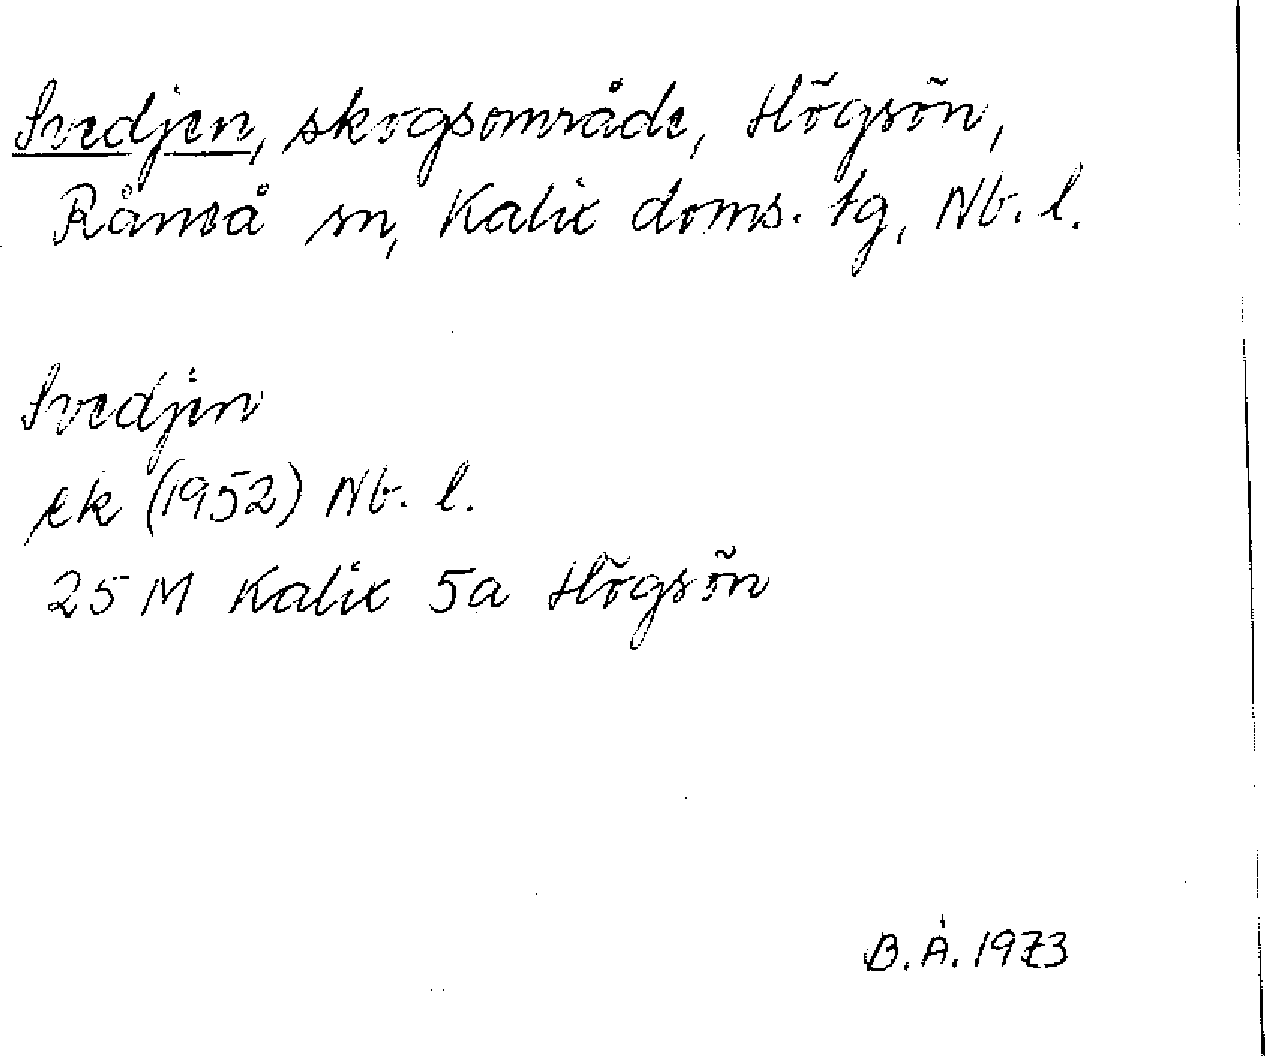 Svedjen, skogsområde, Högsön,
Råneå sn, Kalix doms. tg, Nb. l.
Svedjen
ek (1952) Nb. l.
25 M Kalix 5a Högsön
B. Å. 1973